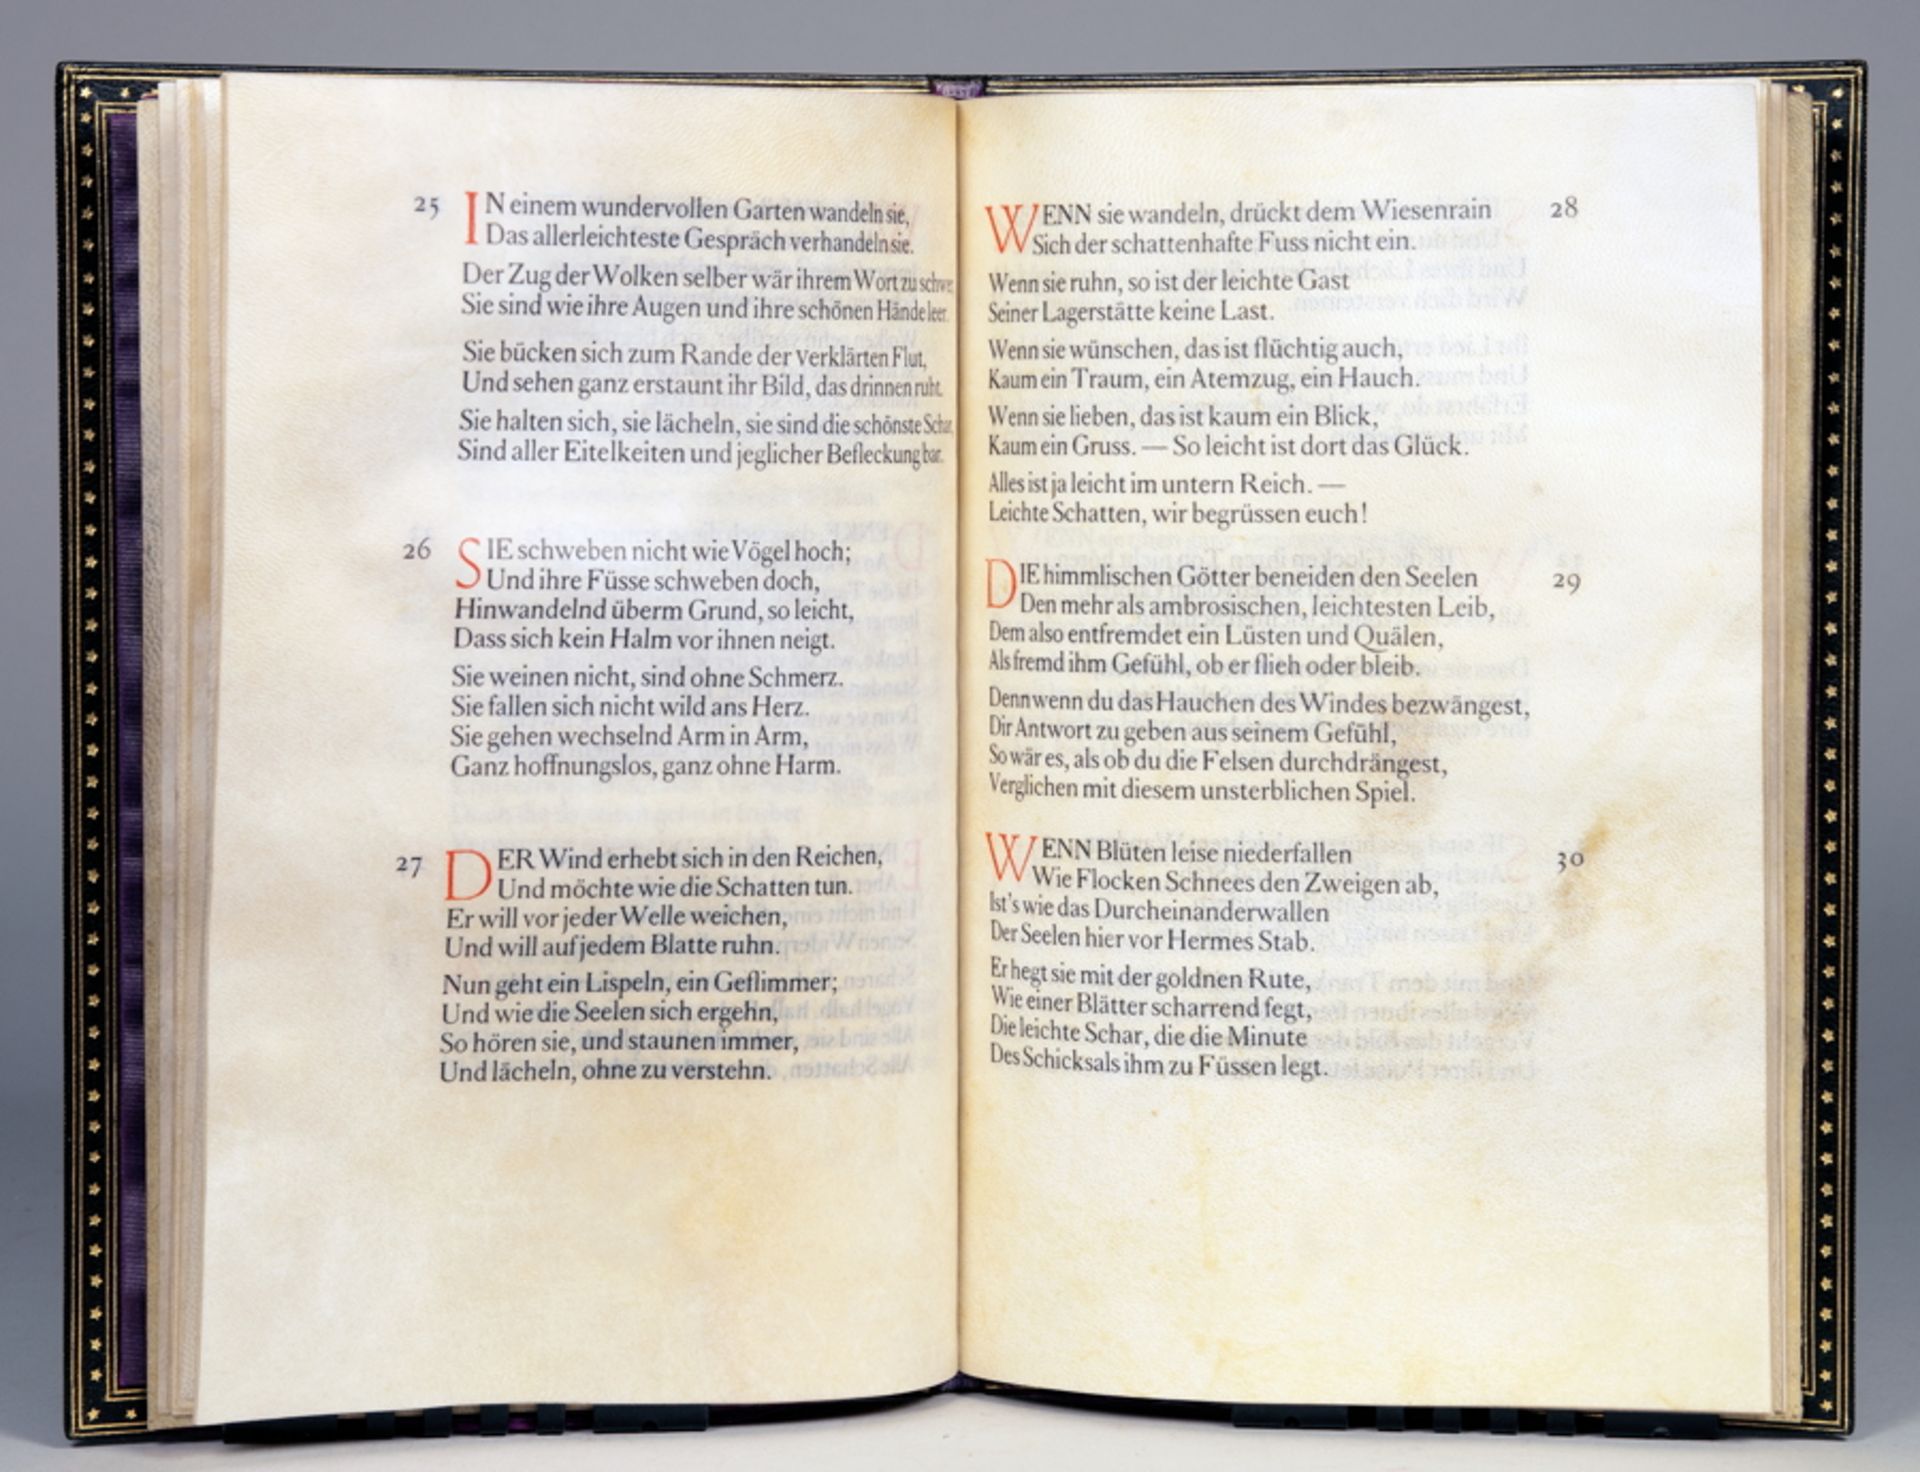 25
IN einem wundervollen Garten wandeln sie,
Das allerleichteste Gespräch verhandeln sie.
Der Zug der Wolken selber wär ihrem Wort zu schwer,
Sie sind wie ihre Augen und ihre schönen Hände leer.
Sie bücken sich zum Rande der verklärten Flut,
Und sehen ganz erstaunt ihr Bild, das drinnen ruht.
Sie halten sich, sie lächeln, sie sind die schönste Schar,
Sind aller Eitelkeiten und jeglicher Befleckung bar.
26
SIE schweben nicht wie Vögel hoch;
Und ihre Füsse schweben doch,
Hinwandelnd überm Grund, so leicht,
Dass sich kein Halm vor ihnen neigt.
Sie weinen nicht, sind ohne Schmerz.
Sie fallen sich nicht wild ans Herz.
Sie gehen wechselnd Arm in Arm,
Ganz hoffnungslos, ganz ohne Harm.
27
DER Wind erhebt sich in den Reichen,
Und möchte wie die Schatten tun.
Er will vor jeder Welle weichen,
Und will auf jedem Blatte ruhn.
Nun geht ein Lispeln, ein Geflimmer;
Und wie die Seelen sich ergehn,
So hören sie, und staunen immer,
Und lächeln, ohne zu verstehn.
WENN sie wandeln, drückt dem Wiesenrain
28
Sich der schattenhafte Fuss nicht ein.
Wenn sie ruhn, so ist der leichte Gast
Seiner Lagerstätte keine Last.
Wenn sie wünschen, das ist flüchtig auch,
Kaum ein Traum, ein Atemzug, ein Hauch.
Wenn sie lieben, das ist kaum ein Blick,
Kaum ein Gruss. — So leicht ist dort das Glück.
Alles ist ja leicht im untern Reich. —
Leichte Schatten, wir begrüssen euch!
DIE himmlischen Götter beneiden den Seelen
29
Den mehr als ambrosischen, leichtesten Leib,
Dem also entfremdet ein Lüsten und Quälen,
Als fremd ihm Gefühl, ob er flieh oder bleib.
Denn wenn du das Hauchen des Windes bezwängest,
Dir Antwort zu geben aus seinem Gefühl,
So wär es, als ob du die Felsen durchdrängest,
Verglichen mit diesem unsterblichen Spiel.
WENN Blüten leise niederfallen
30
Wie Flocken Schnees den Zweigen ab,
Ist's wie das Durcheinanderwallen
Der Seelen hier vor Hermes Stab.
Er hegt sie mit der goldnen Rute,
Wie einer Blätter scharrend fegt,
Die leichte Schar, die die Minute
Des Schicksals ihm zu Füssen legt.